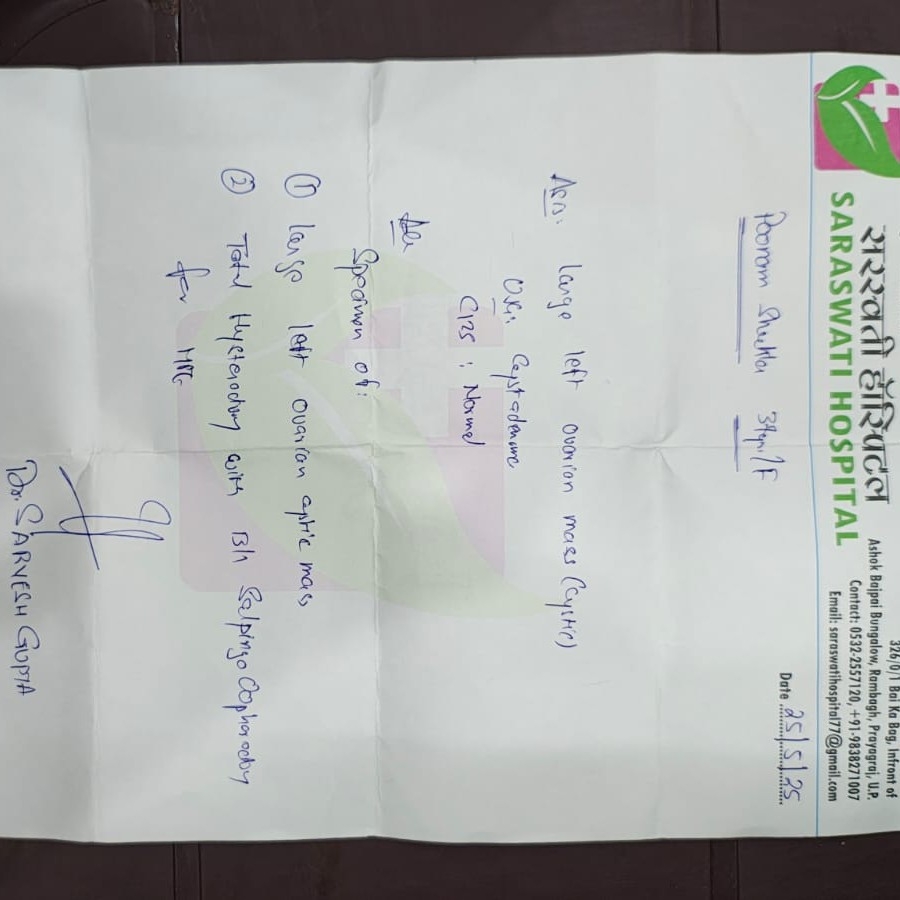 सरस्वती हॉस्पिटल
SARASWATI HOSPITAL
326/0/1 Bai Ka Bag, Infront of
Ashok Bajpai Bungalow, Rambagh, Prayagraj, U.P.
Contact: 0532-2557120, +91-9838271007
Email: saraswatihospital77@gmail.com
Date 25/5/25
Poonam Shukla /F
large left ovarian mass (cystic)
Cystadenoma
C125 : Normal
Specimen of:
① large left ovarian cystic mass
② Total Hysterectomy with B/l Salpingo Oophorectomy
for HPE
Dr. SARVESH GUPTA